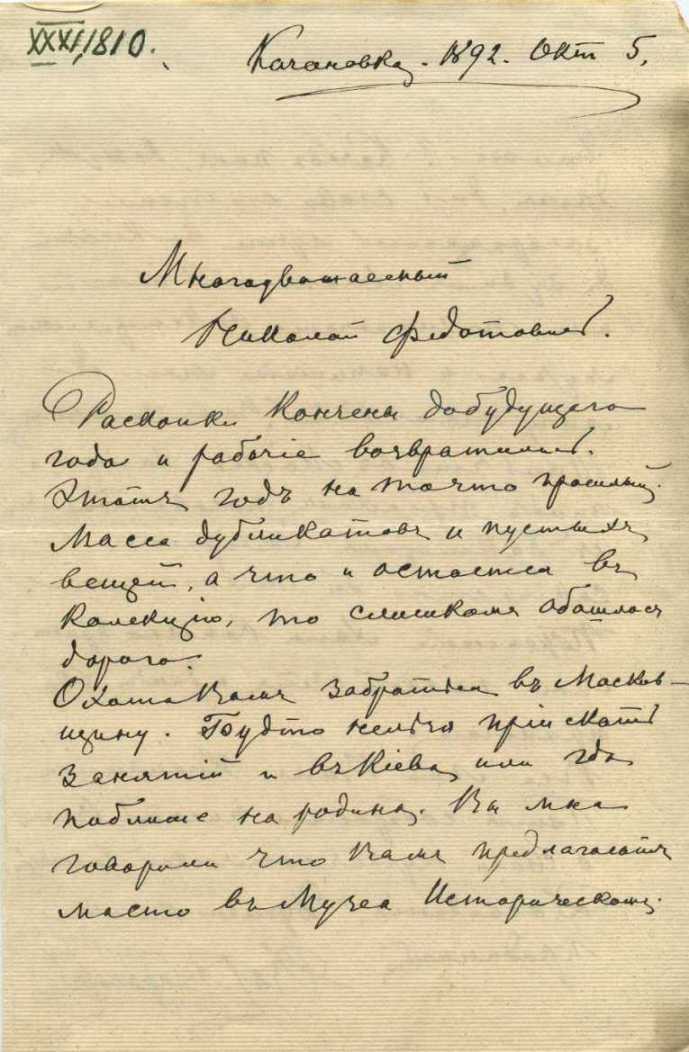 XXXI,1810.
Качановка. 1892. Окт 5.
Многоуважаемый
Николай Федотовичъ.
Раскопки кончены до будущего
года и рабочіе возвратились.
Этотъ годъ не то что прошлый.
Масса дубликатовъ и пустыхъ
вещей, а что и остается въ
колекцію, то слишкомъ обошлось
дорого.
Охота Вамъ забратся въ Москов-
щину. Будто нельзя пріискать
занятій и въ Кіеве или где
поближе на родине. Вы мне
говорили что Вамъ предлагаютъ
место въ Музее Историческомъ.